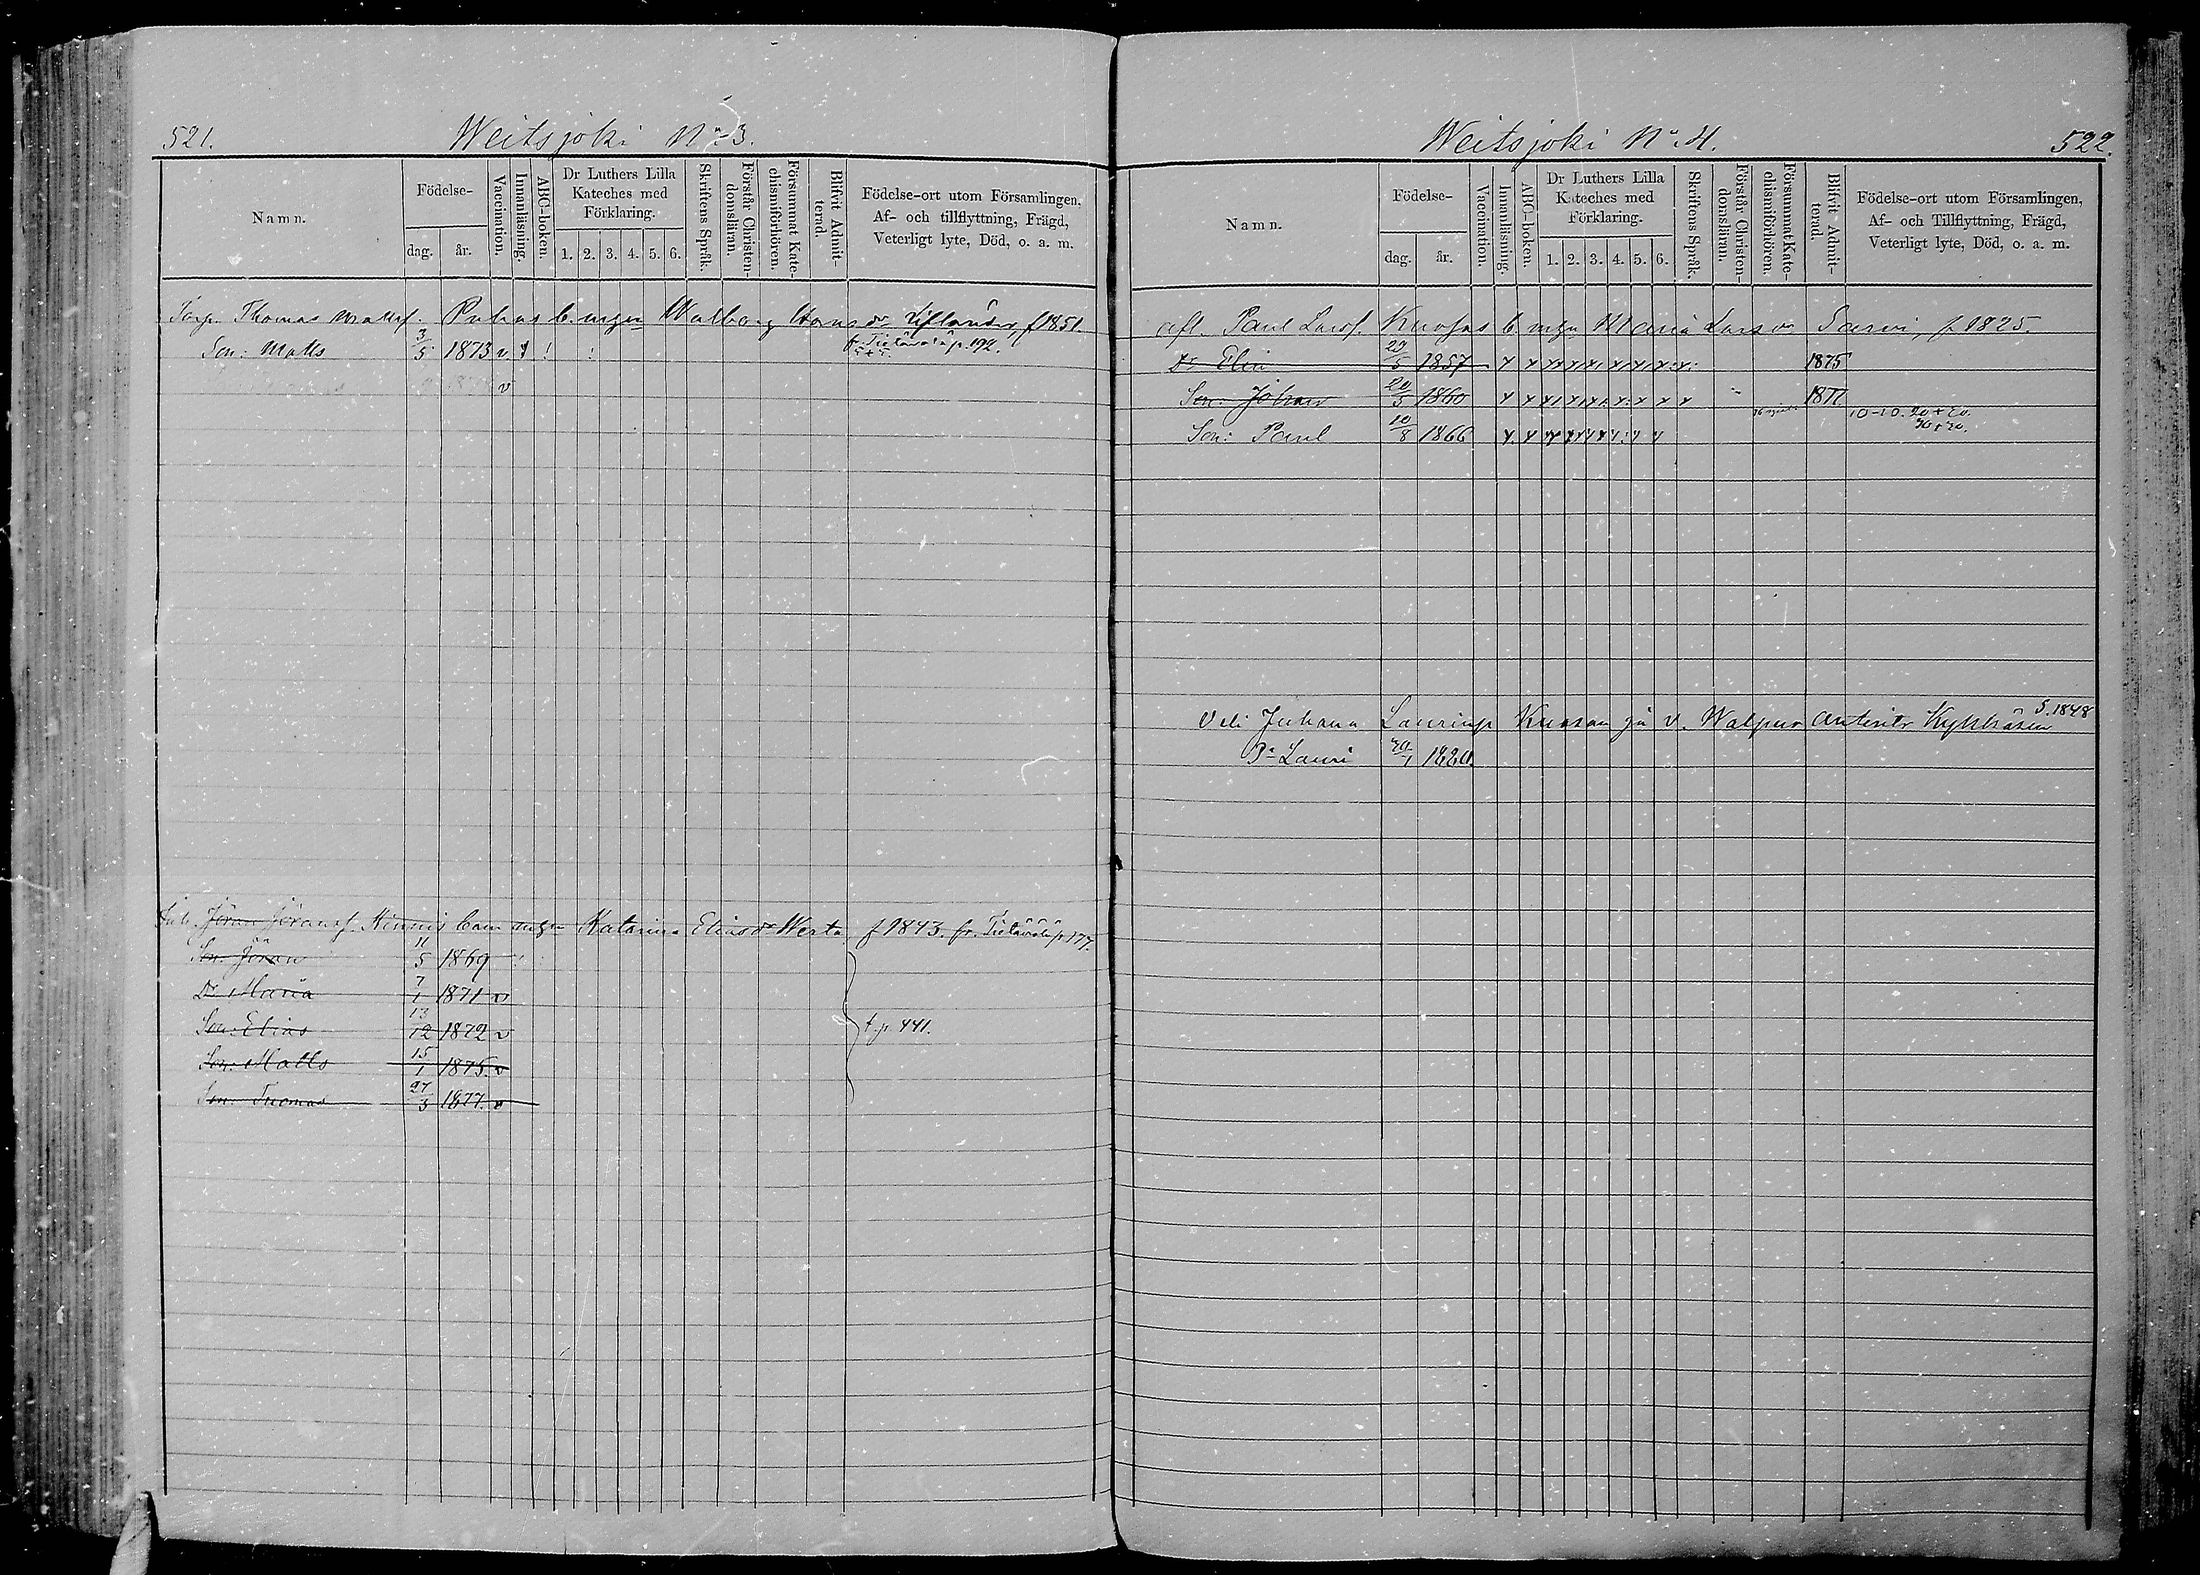 521.
Weitsjoki No 3.
Namn.
Födelse-
dag.
år.
Vaccination.
Innanläsning.
ABC-boken.
Dr Luthers Lilla
Kateches med
Förklaring.
1. 2. 3. 4. 5. 6.
Skriftens Språk.
Förstår Christen-
domsläran.
Försummat Kate-
chismiförhören.
Blifvit Admit-
terad.
Födelse-ort utom Församlingen,
Af- och tillflyttning, Frägd,
Veterligt lyte, Död, o. a. m.
Thomas Mattsf. Walborg Hansdr f 1851.
Son: Matts 3/5 1873 v p. 192.
v
Jöran Jöransf. Katarina Eliasdr Werta f 1843. fr. p 177.
Son: Jöran 11/5 1869
Dr Maria 7/1 1871 v
Son: Elias 13/12 1872 v t. p. 441.
Son: Matts 15/1 1875. v
Son: Tuomas 27/3 1877. v
Weitsjoki No 4.
522.
Namn.
Födelse-
dag.
år.
Vaccination.
Innanläsning.
ABC-boken.
Dr Luthers Lilla
Kateches med
Förklaring.
1. 2. 3. 4. 5. 6.
Skriftens Språk.
Förstår Christen-
domsläran.
Försummat Kate-
chismiförhören.
Blifvit Admit-
terad.
Födelse-ort utom Församlingen,
Af- och Tillflyttning, Frägd,
Veterligt lyte, Död, o. a. m.
Paul Larsf. Maria Larsdr Sarvi, f 1825.
Dr Elin 1857 1875
Son: Johan 20/3 1860 1877
10-10. 20+20.
Son: Paul 10/8 1866
Veli Juhana Laurinp Kuosan ja v. Walpur Antintr S. 1848
Pa Lauri 1880.